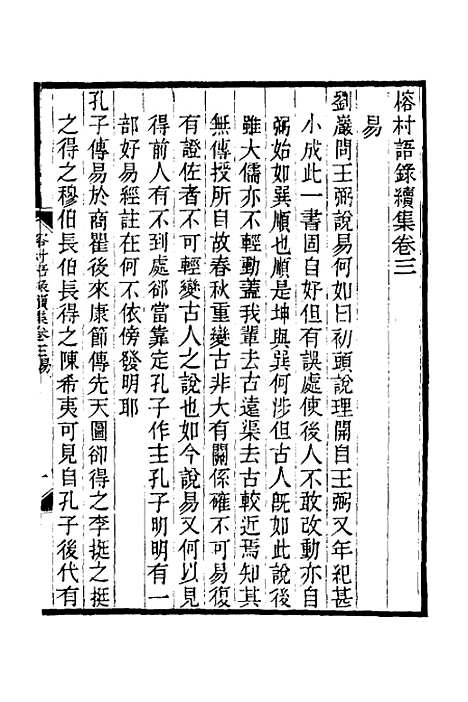 榕村語錄續集卷三
易
劉巖問王弼說易何如曰初頭說理開自王弼又年紀甚
小成此一書固自好但有誤處使後人不敢改動亦自
弼始如巽順也順是坤與巽何涉但古人旣如此說後
雖大儒亦不輕動蓋我輩去古遠渠去古較近焉知其
無傳授所自故春秋重變古非大有關係確不可易復
有證佐者不可輕變古人之說也如今說易又何以見
得前人有不到處卻當靠定孔子作主孔子明明有一
部好易經註在何不依傍發明耶
孔子傳易於商瞿後來康節傳先天圖卻得之李挺之挺
之得之穆伯長伯長得之陳希夷可見自孔子後代有
榕村語錄續集卷三易
一